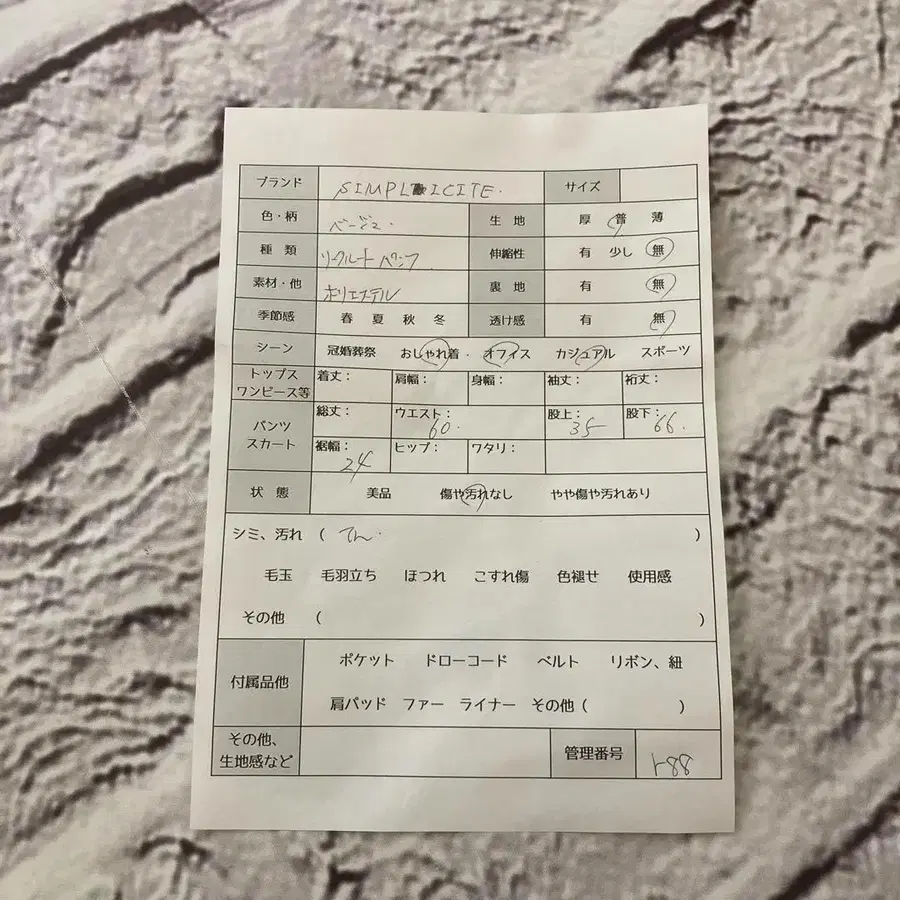 ブランド SIMPLICITE. サイズ
色・柄 ベージュ. 生地 厚 普 薄
種類 パンツ 伸縮性 有 少し 無
素材・他 ポリエステル 裏地 有 無
季節感 春 夏 秋 冬 透け感 有 無
シーン 冠婚葬祭 おしゃれ着・ オフィス カジュアル スポーツ
トップス ワンピース等 着丈： 肩幅： 身幅： 袖丈： 裄丈：
パンツ スカート 総丈： ウエスト： 60. 股上： 35 股下： 66.
裾幅： 24 ヒップ： ワタリ：
状態 美品 傷や汚れなし やや傷や汚れあり
シミ、汚れ （ てん. ）
毛玉 毛羽立ち ほつれ こすれ傷 色褪せ 使用感
その他 （ ）
付属品他 ポケット ドローコード ベルト リボン、紐
肩パッド ファー ライナー その他（ ）
その他、 生地感など 管理番号